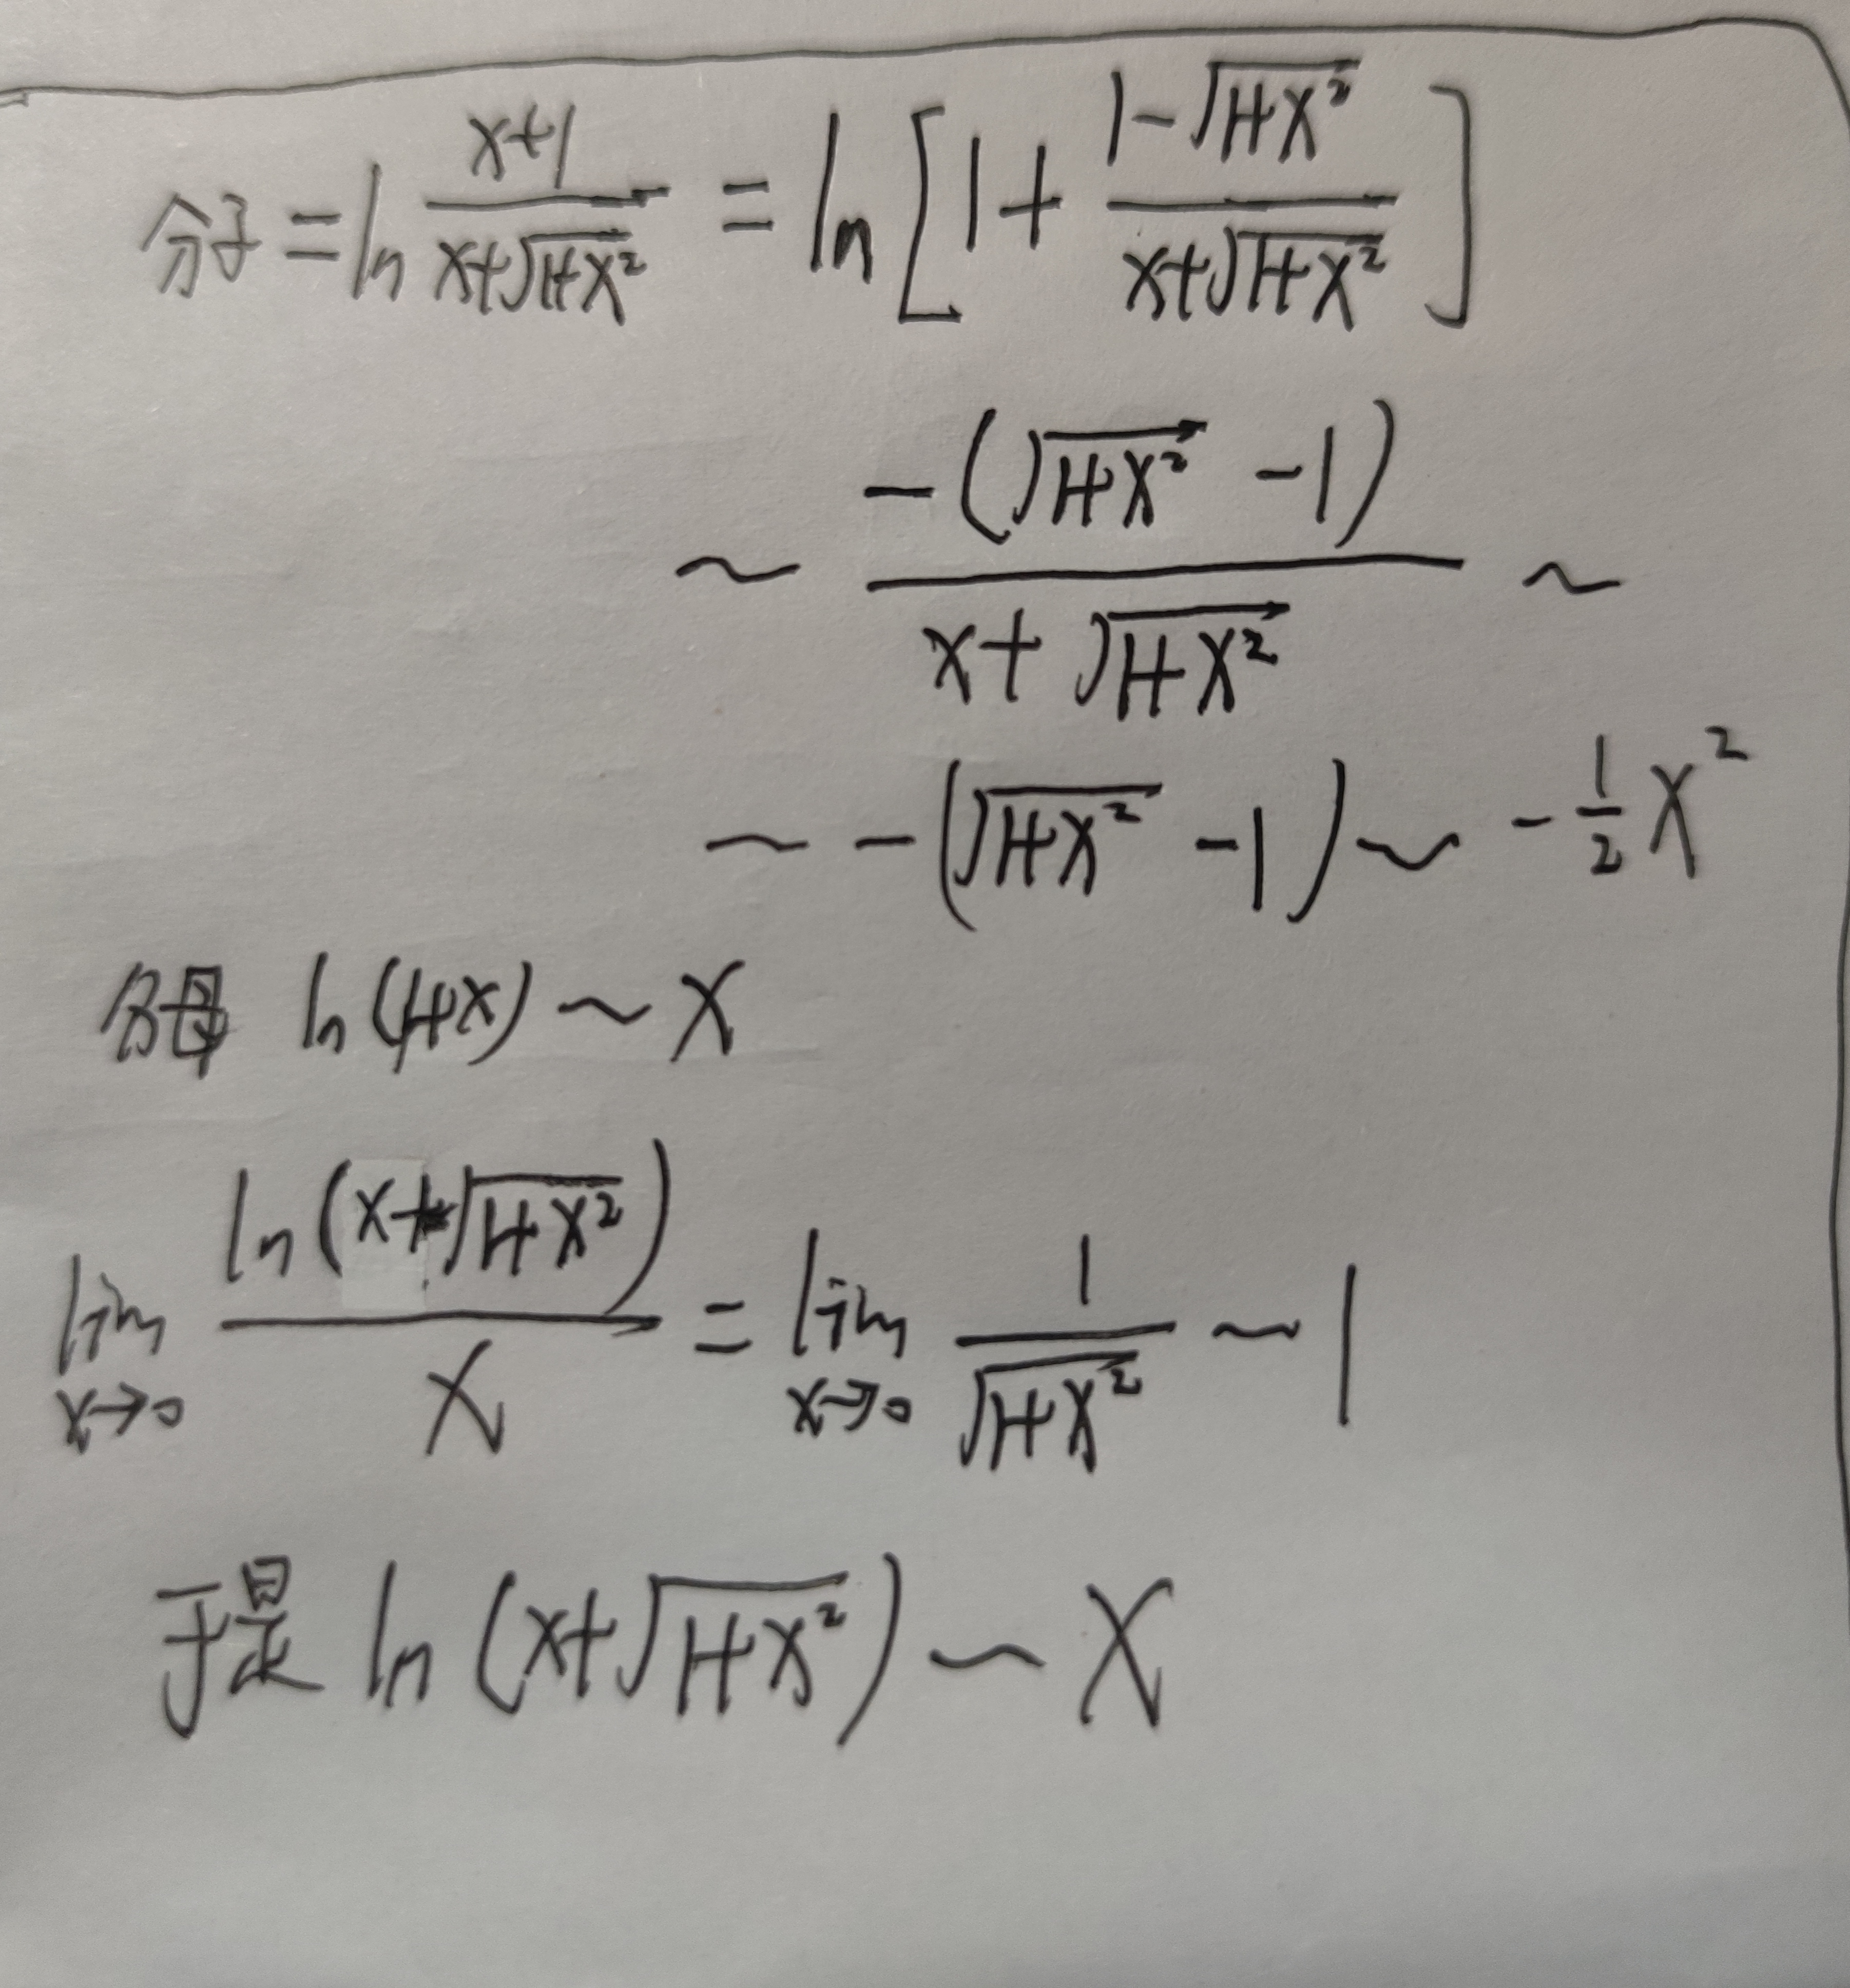 分子 = ln (x+1)/(x+√(1+x²)) = ln[1 + (1-√(1+x²))/(x+√(1+x²))]
~ -(√(1+x²) -1)/(x+√(1+x²)) ~
~ -(√(1+x²) -1) ~ -½x²
分母 ln(1+x) ~ x
lim x→0 ln(x+√(1+x²))/x = lim x→0 1/√(1+x²) ~ 1
于是 ln(x+√(1+x²)) ~ x